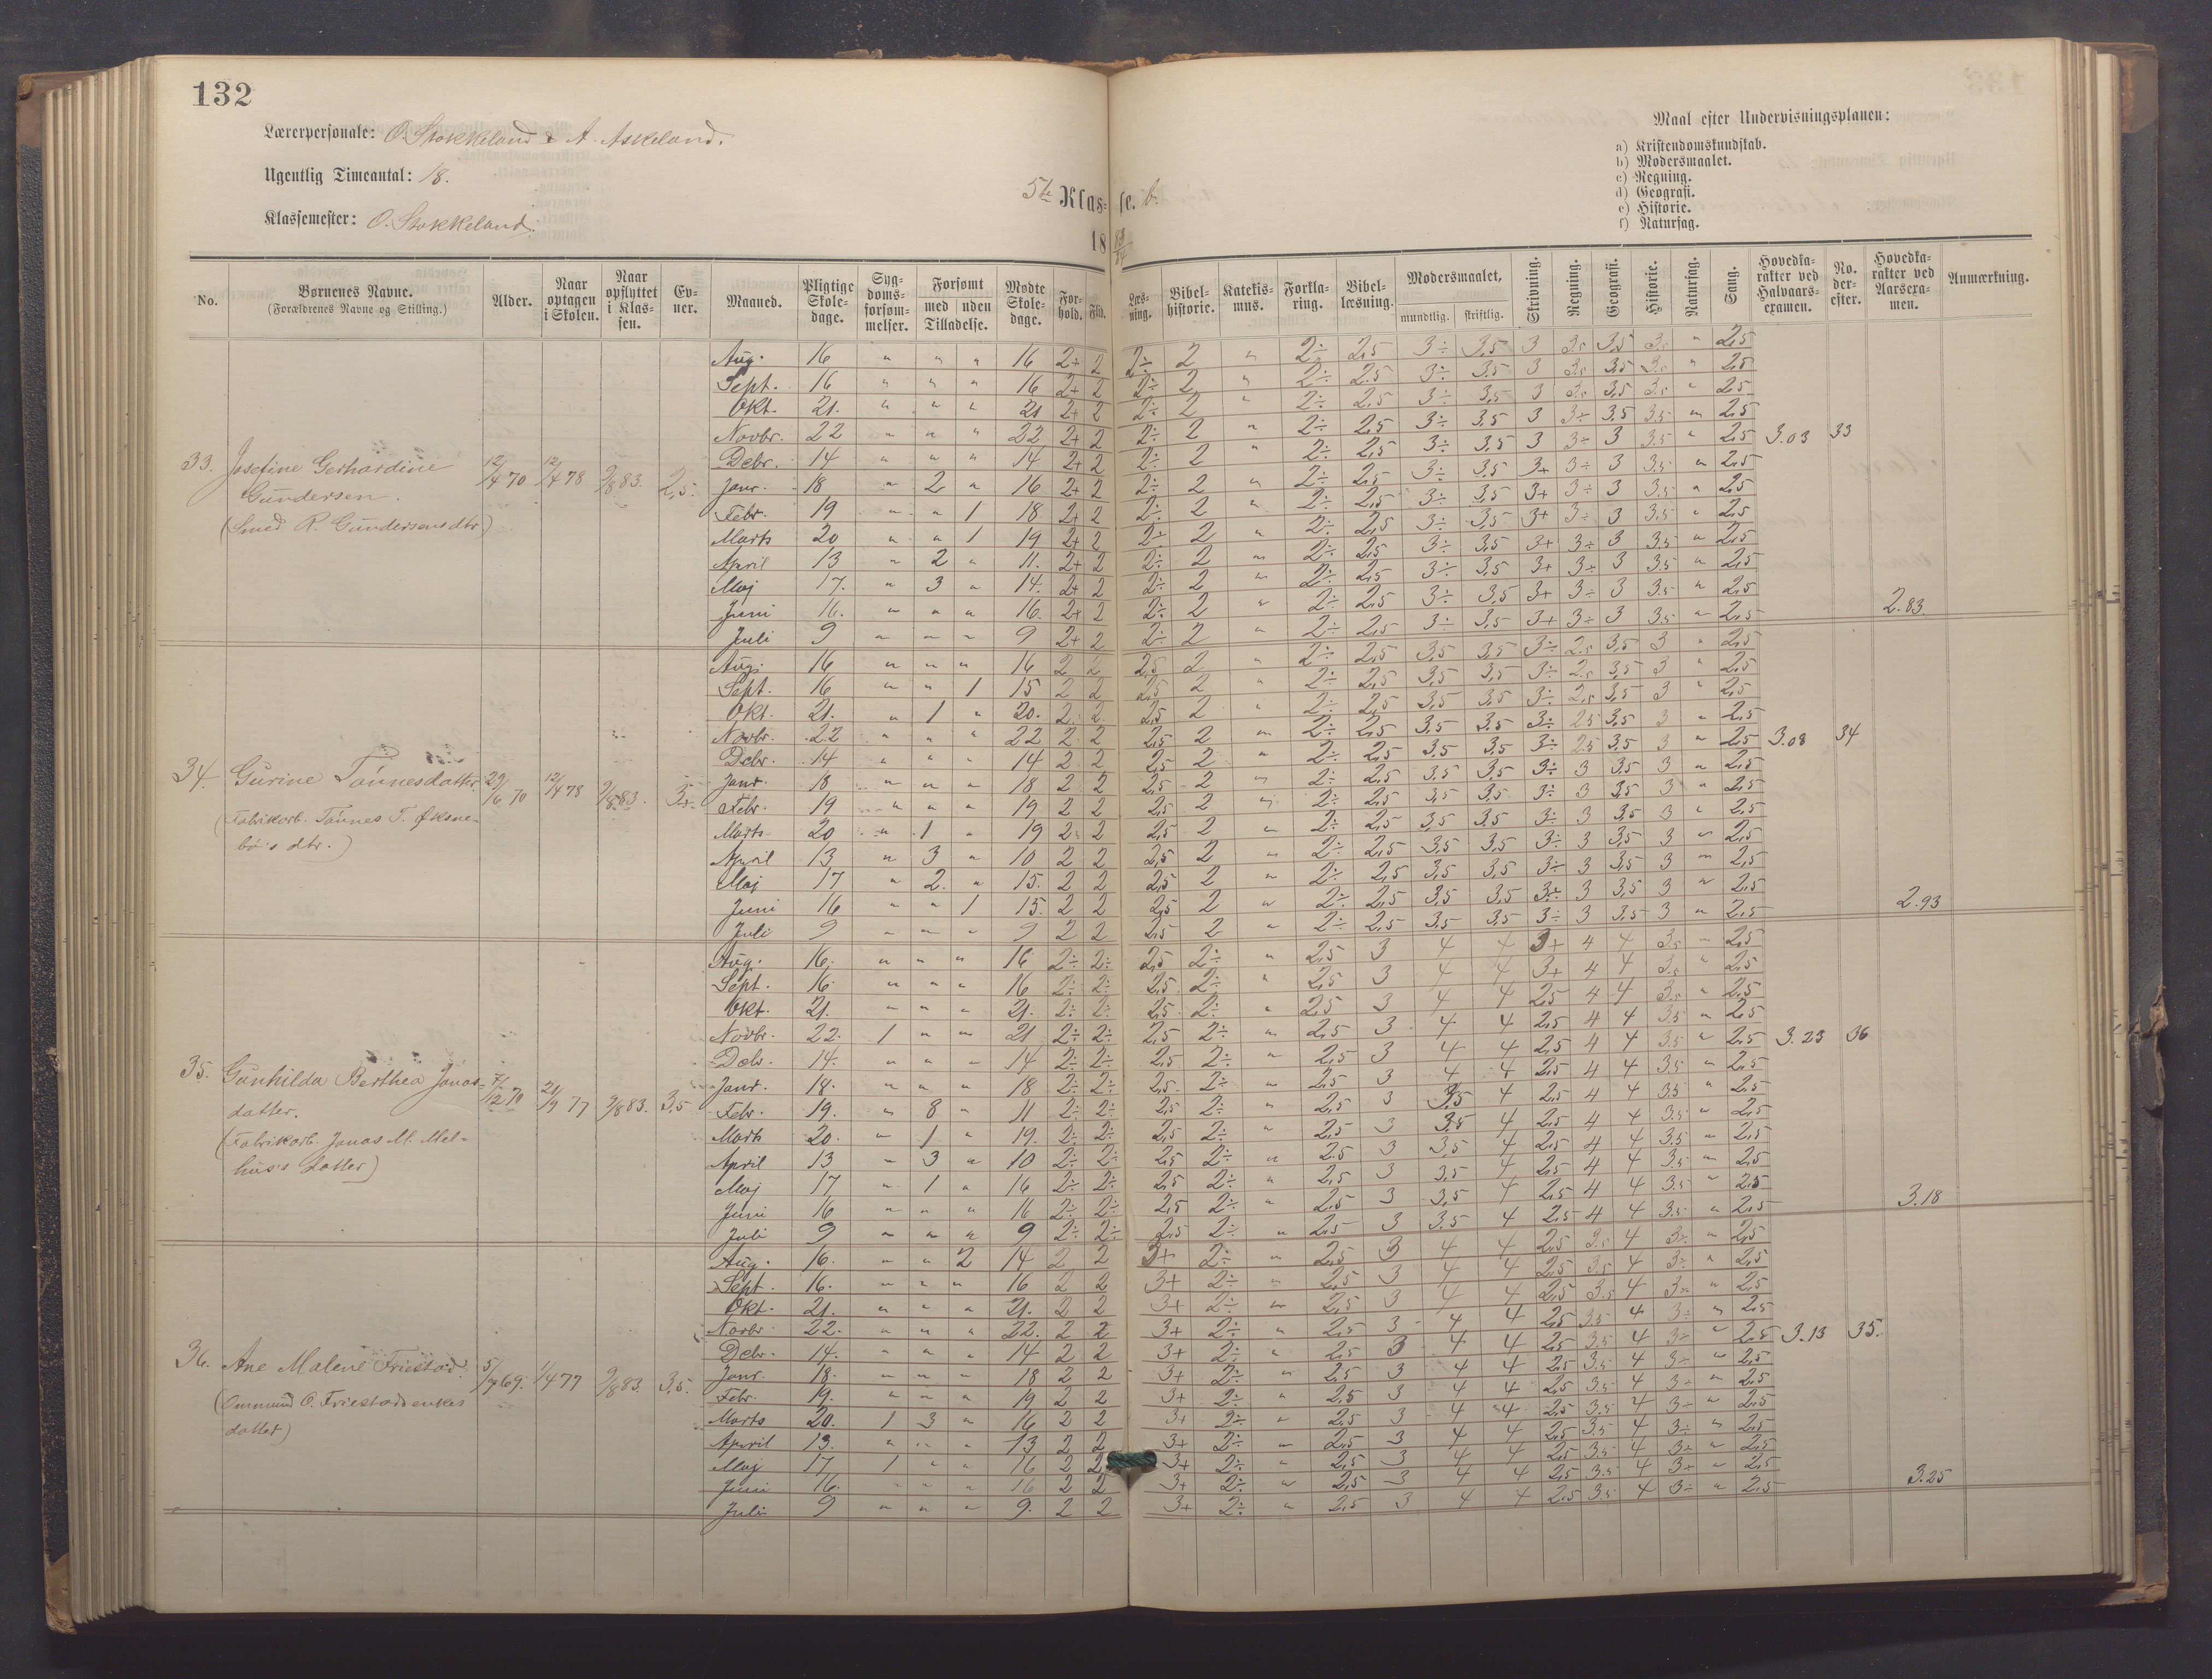 132
Lærerpersonale: O. Stokkeland & A. Askeland.
Ugentlig Timeantal: 18.
Klassemester: O. Stokkeland.
5te Klas= se. b.
18 83/84
Maal efter Undervisningsplanen:
a) Kristendomskundskab.
b) Modersmaalet.
c) Regning.
d) Geografi.
e) Historie.
f) Naturfag.
No. | Børnenes Navne. (Forældrenes Navne og Stilling.) | Alder. | Naar optagen i Skolen. | Naar opflyttet i Klassen. | Evner. | Maaned. | Pligtige Skoledage. | Sygdomsforsømmelser. | Forsømt med Tilladelse. | Forsømt uden Tilladelse. | Mødte Skoledage. | Forhold. | Flid. | Læsning. | Bibelhistorie. | Katekismus. | Forklaring. | Bibellæsning. | Modersmaalet, mundtlig. | skriftlig. | Skrivning. | Regning. | Geografi. | Historie. | Naturfag. | Sang. | Hovedkarakter ved Halvaarsexamen. | No. derefter. | Hovedkarakter ved Aarsexamen. | Anmærkning.
33. Josefine Gerhardine Gundersen. (Smed R. Gundersens dtr.) 12/4 70 12/4 78 9/8 83. 2,5.
Aug. 16 " " " 16 2+ 2 2÷ 2 " 2÷ 2,5 3÷ 3,5 3 3,5 3,5 3,5 " 2,5
Sept. 16 " " " 16 2+ 2 2÷ 2 " 2÷ 2,5 3÷ 3,5 3 3,5 3,5 3,5 " 2,5
Okt. 21. " " " 21 2+ 2 2÷ 2 " 2÷ 2,5 3÷ 3,5 3 3,5 3,5 3,5 " 2,5
Novbr. 22 " " " 22 2+ 2 2÷ 2 " 2÷ 2,5 3÷ 3,5 3 3÷ 3,5 3,5 " 2,5
Debr. 14 " " " 14 2+ 2 2÷ 2 " 2÷ 2,5 3÷ 3,5 3 3÷ 3 3,5 " 2,5 3.03 33
Janr. 18 " 2 " 16 2+ 2 2÷ 2 " 2÷ 2,5 3÷ 3,5 3+ 3÷ 3 3,5 " 2,5
Febr. 19 " " 1 18 2+ 2 2÷ 2 " 2÷ 2,5 3÷ 3,5 3+ 3÷ 3 3,5 " 2,5
Marts 20 " " 1 19 2+ 2 2÷ 2 " 2÷ 2,5 3÷ 3,5 3+ 3÷ 3 3,5 " 2,5
April 13 " 2 " 11. 2+ 2 2÷ 2 " 2÷ 2,5 3÷ 3,5 3+ 3÷ 3 3,5 " 2,5
Maj 17. " 3 " 14. 2+ 2 2÷ 2 " 2÷ 2,5 3÷ 3,5 3+ 3÷ 3 3,5 " 2,5
Juni 16. " " " 16. 2+ 2 2÷ 2 " 2÷ 2,5 3÷ 3,5 3+ 3÷ 3 3,5 " 2,5 2.83.
Juli 9 " " " 9 2+ 2 2÷ 2 " 2÷ 2,5 3÷ 3,5 3+ 3÷ 3 3,5 " 2,5
34. Gurine Tønnesdatter. (Fabrikarb. Tønnes T. Øksnebø's dtr.) 29/6 70 12/4 78 9/8 83. 3+.
Aug. 16 " " " 16 2 2 2,5 2 " 2÷ 2,5 3,5 3,5 3÷ 2,5 3,5 3 " 2,5
Sept. 16 " " 1 15 2 2 2,5 2 " 2÷ 2,5 3,5 3,5 3÷ 2,5 3,5 3 " 2,5
Okt. 21. " 1 " 20. 2 2 2,5 2 " 2÷ 2,5 3,5 3,5 3÷ 2,5 3,5 3 " 2,5
Novbr. 22 " " " 22 2 2 2,5 2 " 2÷ 2,5 3,5 3,5 3÷ 2,5 3,5 3 " 2,5
Debr. 14 " " " 14 2 2 2,5 2 " 2÷ 2,5 3,5 3,5 3÷ 2,5 3,5 3 " 2,5 3.08 34
Janr. 18 " " " 18 2 2 2,5 2 " 2÷ 2,5 3,5 3,5 3÷ 3 3,5 3 " 2,5
Febr. 19 " " " 19 2 2 2,5 2 " 2÷ 2,5 3,5 3,5 3÷ 3 3,5 3 " 2,5
Marts 20 " 1 " 19 2 2 2,5 2 " 2÷ 2,5 3,5 3,5 3÷ 3 3,5 3 " 2,5
April 13 " 3 " 10 2 2 2,5 2 " 2÷ 2,5 3,5 3,5 3÷ 3 3,5 3 " 2,5
Maj 17 " 2. " 15. 2 2 2,5 2 " 2÷ 2,5 3,5 3,5 3÷ 3 3,5 3 " 2,5
Juni 16 " " 1 15. 2 2 2,5 2 " 2÷ 2,5 3,5 3,5 3÷ 3 3,5 3 " 2,5 2.93
Juli 9 " " " 9 2 2 2,5 2 " 2÷ 2,5 3,5 3,5 3÷ 3 3,5 3 " 2,5
35. Gunhilda Berthea Jonasdatter. (Fabrikarb. Jonas M. Melhus's datter) 7/12 70 21/9 77 9/8 83. 3,5
Aug. 16. " " " 16 2÷ 2÷ 2,5 2÷ " 2,5 3 4 4 3+ 4 4 3,5 " 2,5
Sept. 16. " " " 16 2÷ 2÷ 2,5 2÷ " 2,5 3 4 4 3+ 4 4 3,5 " 2,5
Okt. 21. " " " 21. 2÷ 2÷ 2,5 2÷ " 2,5 3 4 4 2,5 4 4 3,5 " 2,5
Novbr. 22. 1 " " 21 2÷ 2÷ 2,5 2÷ " 2,5 3 4 4 2,5 4 4 3,5 " 2,5
Debr. 14. " " " 14 2÷ 2÷ 2,5 2÷ " 2,5 3 4 4 2,5 4 4 3,5 " 2,5 3.23 36
Janr. 18. " " " 18 2÷ 2÷ 2,5 2÷ " 2,5 3 4 4 2,5 4 4 3,5 " 2,5
Febr. 19. " 8 " 11 2÷ 2÷ 2,5 2÷ " 2,5 3 3,5 4 2,5 4 4 3,5 " 2,5
Marts 20. " 1 " 19. 2÷ 2÷ 2,5 2÷ " 2,5 3 3,5 4 2,5 4 4 3,5 " 2,5
April 13 " 3 " 10 2÷ 2÷ 2,5 2÷ " 2,5 3 3,5 4 2,5 4 4 3,5 " 2,5
Maj 17 " 1 " 16 2÷ 2÷ 2,5 2÷ " 2,5 3 3,5 4 2,5 4 4 3,5 " 2,5
Juni 16 " " " 16 2÷ 2÷ 2,5 2÷ " 2,5 3 3,5 4 2,5 4 4 3,5 " 2,5 3.18
Juli 9 " " " 9 2÷ 2÷ 2,5 2÷ " 2,5 3 3,5 4 2,5 4 4 3,5 " 2,5
36. Ane Malene Friestad. (Ommund O. Friestads enkes datter) 5/7 69. 1/4 77 9/8 83. 3,5.
Aug. 16. " " 2 14 2 2 3+ 2÷ " 2,5 3 4 4 2,5 3,5 4 3÷ " 2,5
Sept. 16. " " " 16 2 2 3+ 2÷ " 2,5 3 4 4 2,5 3,5 4 3÷ " 2,5
Okt. 21. " " " 21. 2 2 3+ 2÷ " 2,5 3 4 4 2,5 3,5 4 3÷ " 2,5
Novbr. 22. " " " 22. 2 2 3+ 2÷ " 2,5 3 4 4 2,5 3,5 4 3÷ " 2,5
Debr. 14. " " " 14 2 2 3+ 2÷ " 2,5 3 4 4 2,5 3,5 4 3÷ " 2,5 3.13 35.
Janr. 18. " " " 18 2 2 3+ 2÷ " 2,5 3 4 4 2,5 3,5 4 3÷ " 2,5
Febr. 19. " " " 19 2 2 3+ 2÷ " 2,5 3 4 4 2,5 3,5 4 3÷ " 2,5
Marts 20. 1 3 " 16 2 2 3+ 2÷ " 2,5 3 4 4 2,5 3,5 4 3÷ " 2,5
April 13. " " " 13 2 2 3+ 2÷ " 2,5 3 4 4 2,5 3,5 4 3÷ " 2,5
Maj 17 1 " " 16 2 2 3+ 2÷ " 2,5 3 4 4 2,5 3,5 4 3÷ " 2,5
Juni 16. " " " 16 2 2 3+ 2÷ " 2,5 3 4 4 2,5 3,5 4 3÷ " 2,5 3.25
Juli 9 " " " 9. 2 2 3+ 2÷ " 2,5 3 4 4 2,5 3,5 4 3÷ " 2,5